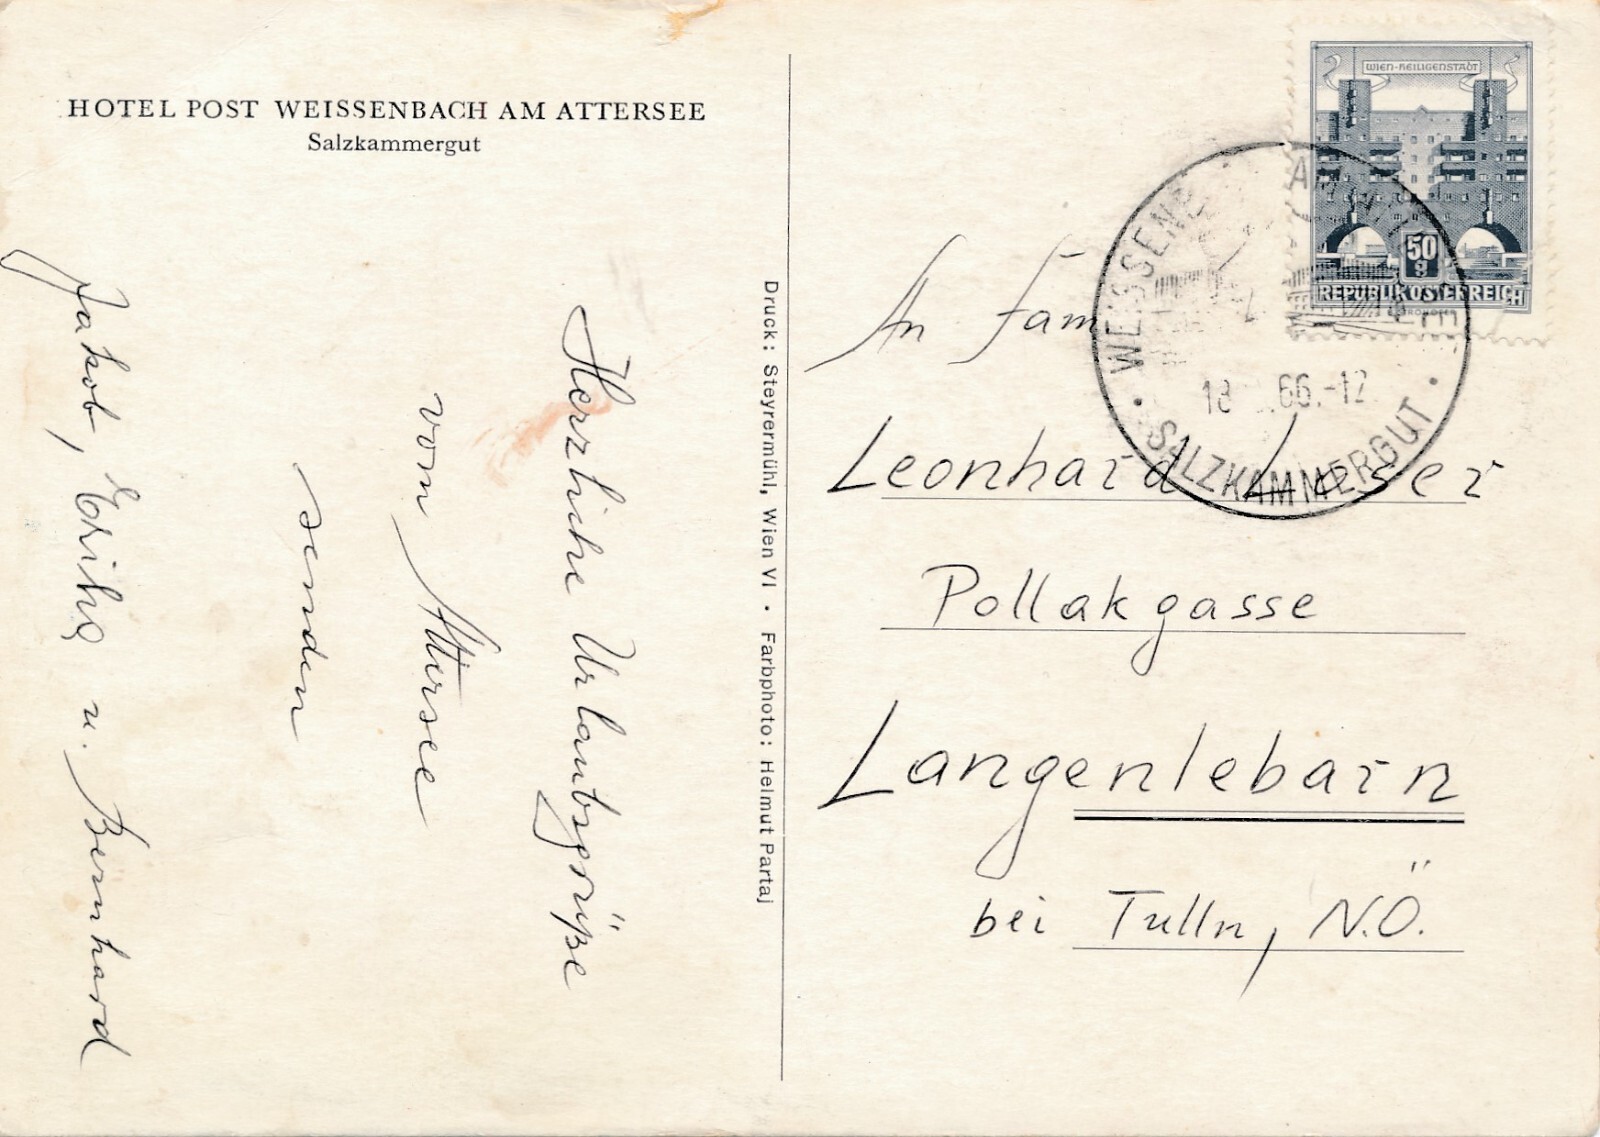 HOTEL POST WEISSENBACH AM ATTERSEE
Salzkammergut
Herzliche Urlaubsgrüße
vom Attersee
senden
Jakob, Erika u. Bernhard
Druck: Steyrermühl, Wien VI · Farbphoto: Helmut Partaj
WIEN-HEILIGENSTADT
50
g
REPUBLIK ÖSTERREICH
WEISSENB
18 66.-12
SALZKAMMERGUT
An Fam
Leonhard
Pollakgasse
Langenlebarn
bei Tulln, N.Ö.